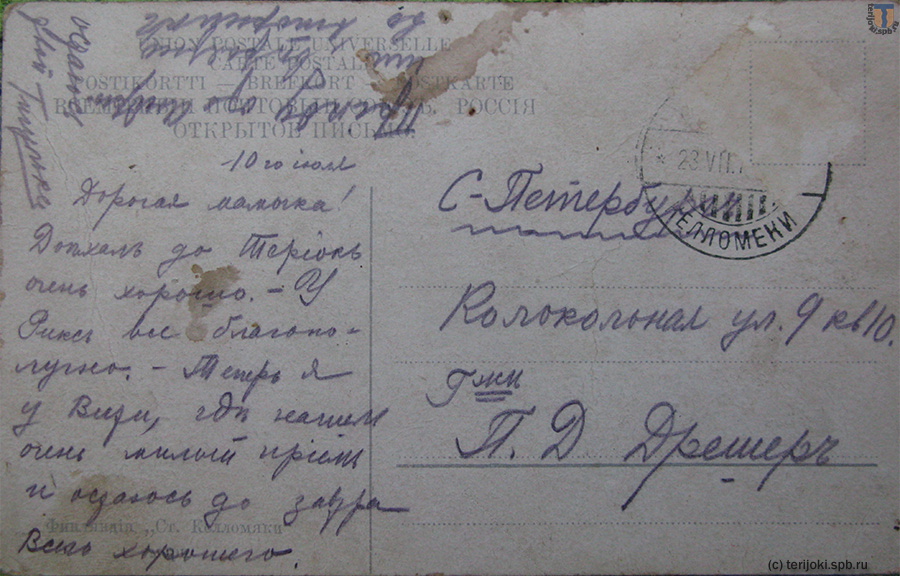 UNION POSTALE UNIVERSELLE
CARTE POSTALE
POSTIKORTTI — BREFKORT — POSTKARTE
ВСЕМІРНЫЙ ПОЧТОВЫЙ СОЮЗЪ. РОССІЯ
ОТКРЫТОЕ ПИСЬМО.
10го іюля
Дорогая мамочка!
Доѣхалъ до Теріокъ
очень хорошо. – У
Рикса все благопо-
лучно. – Теперь я
у Визи, гдѣ нашелъ
очень милый пріемъ
и остаюсь до завтра
Всего хорошаго.
Финляндія „Ст. Келломяки
С-Петербургъ
Колокольная ул. 9 кв 10.
Гжи
П. Д Дрешеръ
23 VII.
КЕЛЛОМЕКИ
terijoki.spb.ru
(c) terijoki.spb.ru